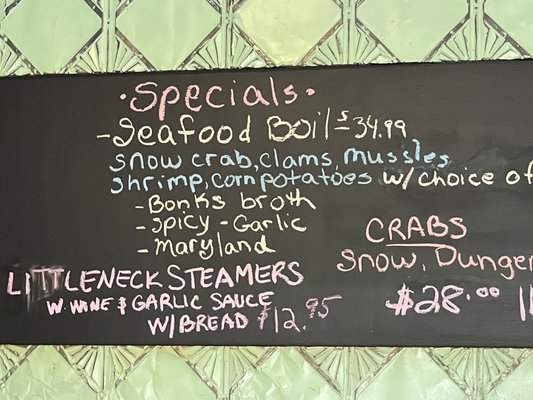 ·Specials·
-Seafood Boil-$34.99
snow crab, clams, mussles,
shrimp, corn potatoes w/ choice of
- Bonks broth
- spicy - Garlic
- maryland
CRABS
Snow, Dunger
$28.00
LITTLENECK STEAMERS
W. WINE & GARLIC SAUCE
W/BREAD $12.95